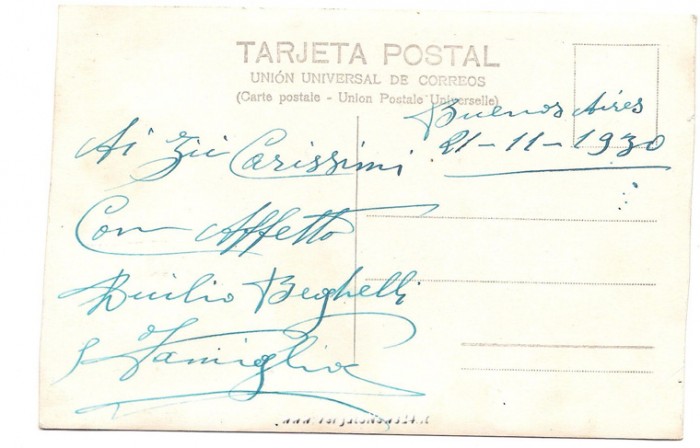 TARJETA POSTAL
UNIÓN UNIVERSAL DE CORREOS
(Carte postale - Union Postale Universelle)
Buenos Aires
21-11-1930
Ai Zii Carissimi
Con Affetto
Duilio Beghelli
e Famiglia